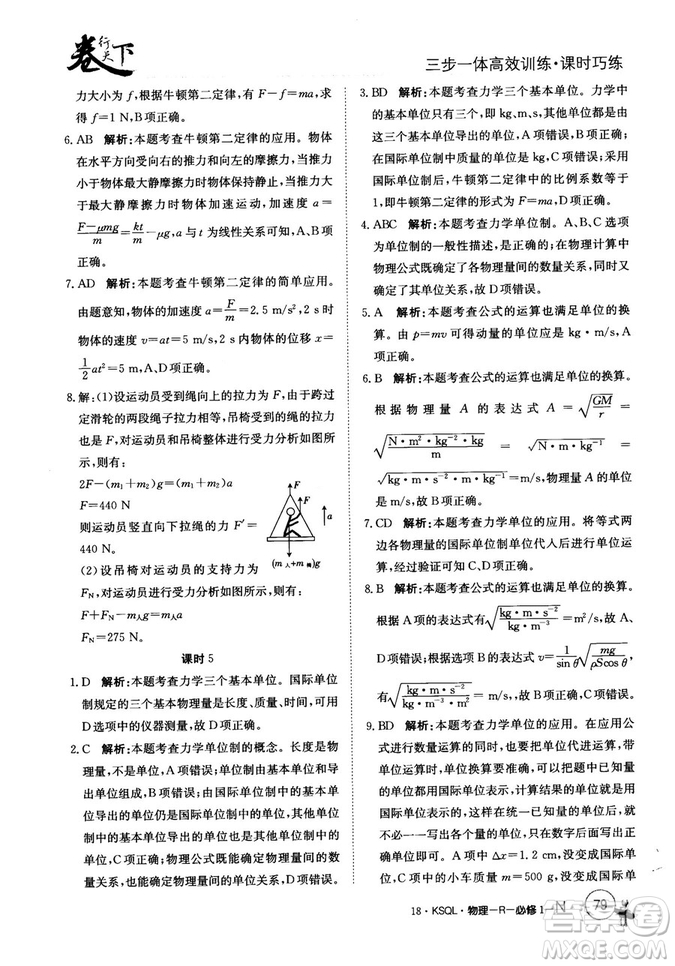 卷行天下
三步一体高效训练·课时巧练
力大小为 f,根据牛顿第二定律,有 F－f=ma,故
求得:f=1 N,B项正确。
6. AB 解析:本题考查牛顿第二定律的应用。物体
在水平方向受向右的推力和向左的摩擦力,当推力
小于物体最大静摩擦力时物体保持静止,当推力大
于最大静摩擦力时物体做加速运动,加速度 a=
F－μmg/m=kt/m－μg,a 与 t 为线性关系,A、B项正
确。
7. AD 解析:本题考查牛顿第二定律的简单应用。
由题意知,物体的加速度 a=F/m=2.5 m/s²,2 s 时
物体的速度 v=at=5 m/s,2 s内物体的位移 x=
1/2at²=5 m,A、D项正确。
8. 解:(1)设运动员受到绳向上的拉力为 F,由于跨过
定滑轮的两段绳子拉力相等,吊椅受到绳的拉力也
是 F。对运动员和吊椅整体进行受力分析如图所
示,则有:
2F－(m₁+m₂)g=(m₁+m₂)a
F=440 N
则运动员竖直向下拉绳的力 F′=
440 N。
F F a
(m人+m椅)g
(2)设吊椅对运动员的支持力为
F_N,对运动员进行受力分析则有:
F+F_N－m人g=m人a
F_N=275 N。
课时 5
1. D 解析:本题考查力学单位制。国际单位
制规定的三个基本物理量长度、质量、时间,可以用
D选项中的仪器测量,故 D项正确。
2. C 解析:本题考查力学单位制的概念。长度是物
理量,不是单位,A项错误;在国际单位制中,由基本
单位组合而成,B项错误;由国际单位制中的基本单
位导出的单位仍是国际单位制中的单位,由其他基
本单位导出的单位就不是国际单位制中的单位,
C项正确;物理公式既能确定物理量间的数量关
系,又能确定物理量间的单位关系,D项错误。
3. BD 解析:本题考查力学三个基本单位。力学中
的基本单位只有 kg、m、s,其他单位都是由
这三个基本单位导出的单位,A项错误;
在国际单位制中质量的单位是 kg,C项错误;采用
国际单位制后,牛顿第二定律中的比例系数等于
1,即牛顿第二定律的形式为 F=ma,D项正确。
4. ABC 解析:本题考查力学单位制。A、B、C选项
为单位制的一般性描述,正确;在物理计算中
物理公式既能确定物理量间的数量关系,又能确定
物理量间的单位关系,D项错误。
5. A 解析:本题考查公式的运算也满足单位的换
算。由 p=mv 可得动量的单位为 kg·m/s,A项
正确。
6. B 解析:本题考查公式的运算也满足单位的换算。
根据物理量 A 的表达式 A=√(GM/r)=
√(N·m²·kg⁻²·kg/m)=√(N·m·kg⁻¹)=
√(kg·m·s⁻²·m·kg⁻¹)=m/s,可知物理量 A 的单位为
m/s,故 B项正确。
7. CD 解析:本题考查力学单位的应用。将等式两
边各物理量的国际单位制单位代入后进行单位运
算,经过验证可知 C、D项正确。
8. B 解析:本题考查公式的运算也满足单位的换算。
根据 A项的表达式有√(kg·m·s⁻²/kg·m⁻³)=m²/s,故 A、C、
D项错误;根据B项的表达式 v=1/sin θ √(mg/ρScos θ),
有√(kg·m·s⁻²/kg·m⁻³·m²)=m/s,B项正确。
9. BD 解析:本题考查力学单位的应用。在应用公
式进行数量运算的同时,也要把单位代进运算,带
单位运算时,单位换算要准确。可以把题中的已知
量的单位都用国际单位表示,计算结果的单位就是
用国际单位表示的,这样在统一各已知量的单位后,就
不必一一写出各个量的单位,只在数字后面写出
正确单位即可。A项中 Δx=1.2 cm,没变成国际
单位,A项错误;C项中 m=500 g,没变成国际单
18·KSQL·物理－R－必修 1－N
79
答案圈
MXQE.COM